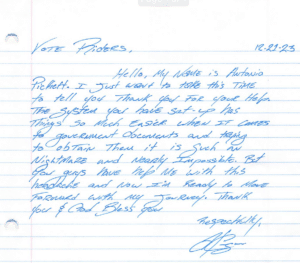 VOTE RIDERS, 12-29-23
Hello, My Name is Antonio
Pickett. I Just want to take this TIME
to tell you THANK YOU FOR YOUR Help.
THE SYSTEM YOU HAVE SET-UP HAS
THINGS SO MUCH EASIER WHEN IT COMES
to government DOCUMENTS AND trying
to OBTAIN THEM IT IS SUCH AN
NIGHTMARE and Nearly Impossible. But
You guys HAVE Help ME WITH THIS
headache and NOW I'M READY to MOVE
FORWARD WITH MY JOURNEY. THANK
YOU & GOD BLESS YOU
Respectfully,